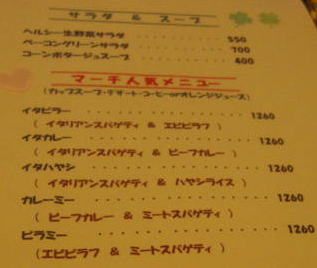 サラダ & スープ
ヘルシー生野菜サラダ ・・・・・・・・・ 550
ベーコングリーンサラダ ・・・・・・・・ 700
コーンポタージュスープ ・・・・・・・・ 400
マーチ人気メニュー
(カップスープ・デザート・コーヒーorオレンジジュース)
イタピラー ・・・・・・・・・・・・ 1260
( イタリアンスパゲティ & エビピラフ )
イタカレー ・・・・・・・・・・・・ 1260
( イタリアンスパゲティ & ビーフカレー )
イタハヤシ ・・・・・・・・・・・・ 1260
( イタリアンスパゲティ & ハヤシライス )
カレーミー ・・・・・・・・・・・・ 1260
( ビーフカレー & ミートスパゲティ )
ピラミー ・・・・・・・・・・・・ 1260
(エビピラフ & ミートスパゲティ )